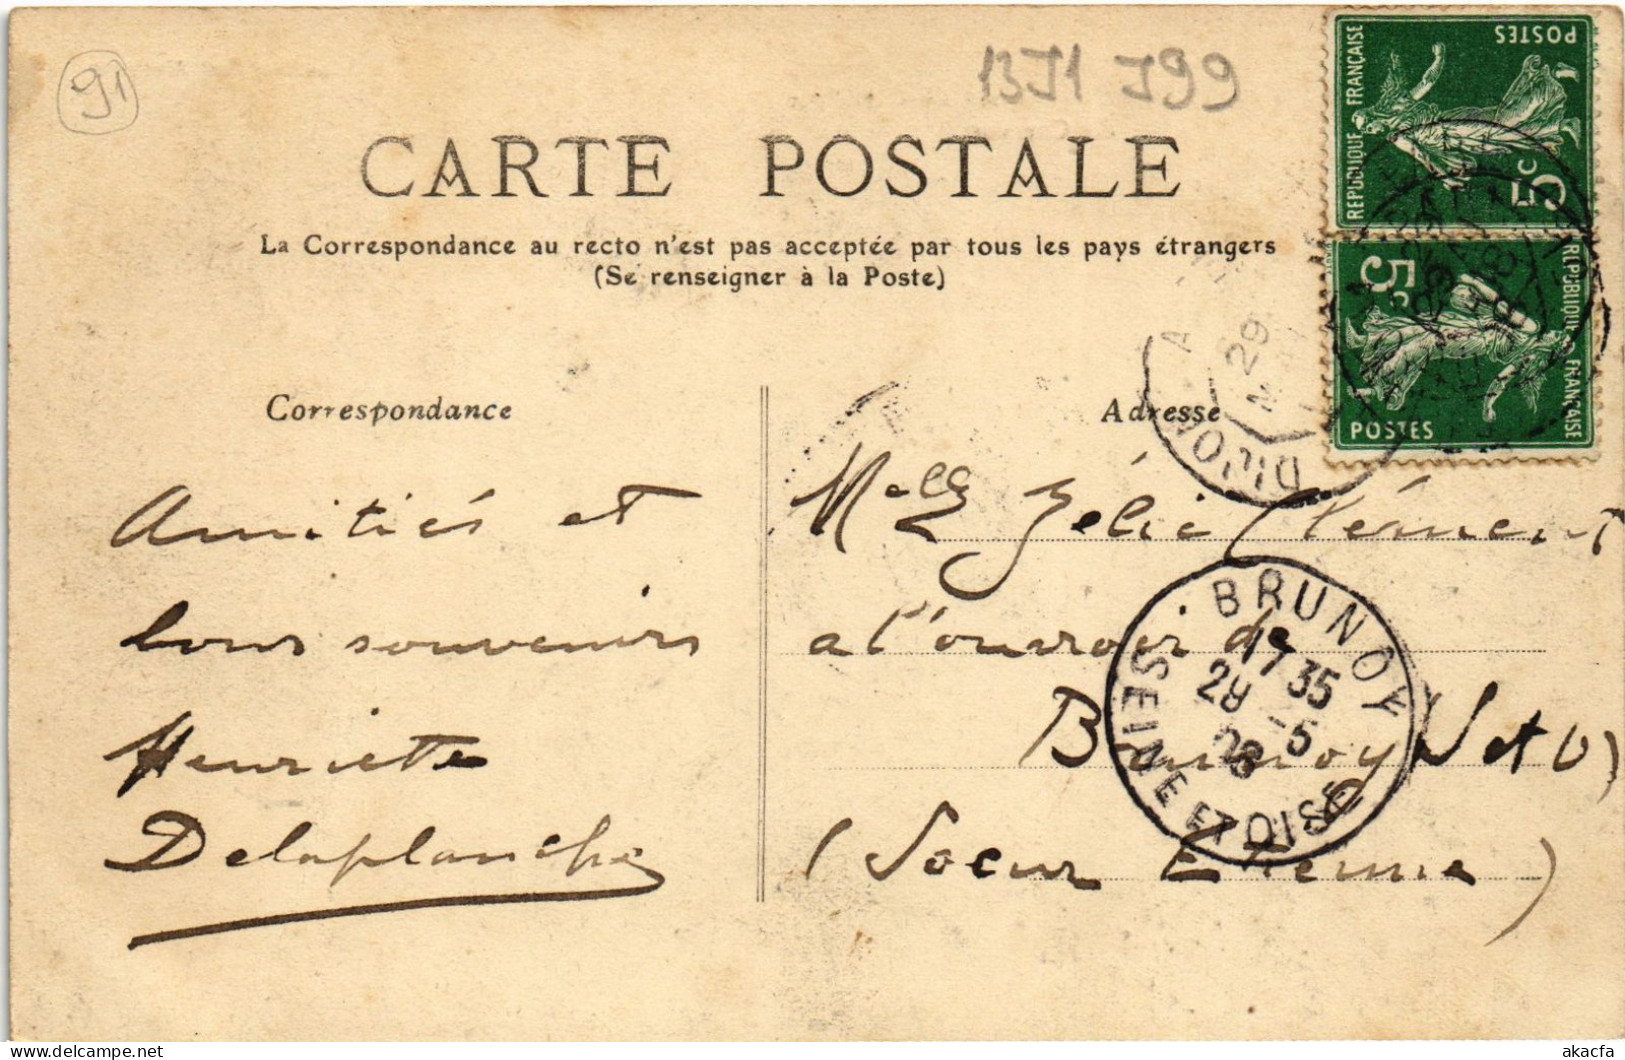 91
13J1 J99
CARTE POSTALE
La Correspondance au recto n'est pas acceptée par tous les pays étrangers
(Se renseigner à la Poste)
REPUBLIQUE FRANÇAISE
POSTES
5c
REPUBLIQUE FRANÇAISE
POSTES
5c
A DIJON
29
Correspondance
Adresse
Amitiés et
bons souvenirs
Henriette
Delaplanche
Melle Zélie Clément
a l'ouvroir de
Brunoy (S et O)
(Soeur Etienne)
BRUNOY
17 35
28 -5
SEINE ET OISE
akacfa